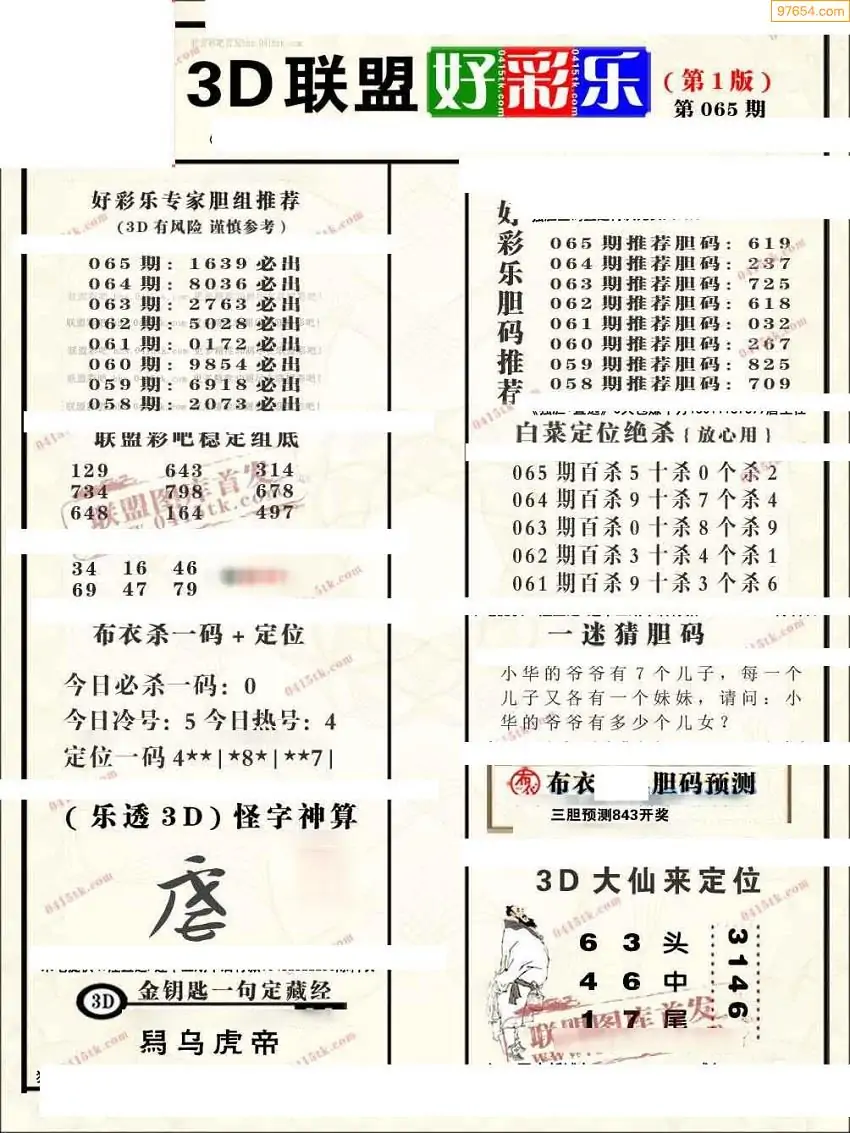 97654.com
3D联盟好彩乐
(第1版)
第065期
好彩乐专家胆组推荐
(3D有风险 谨慎参考)
065期: 1639必出
064期: 8036必出
063期: 2763必出
062期: 5028必出
061期: 0172必出
060期: 9854必出
059期: 6918必出
058期: 2073必出
联盟彩吧稳定组底
129 643 314
734 798 678
648 164 497
34 16 46
69 47 79
布衣杀一码+定位
今日必杀一码: 0
今日冷号: 5 今日热号: 4
定位一码 4**|*8*|**7|
(乐透3D)怪字神算
3D 金钥匙一句定藏经
舄乌虎帝
好彩乐胆码推荐
065期推荐胆码: 619
064期推荐胆码: 237
063期推荐胆码: 725
062期推荐胆码: 618
061期推荐胆码: 032
060期推荐胆码: 267
059期推荐胆码: 825
058期推荐胆码: 709
白菜定位绝杀{放心用}
065期百杀5十杀0个杀2
064期百杀9十杀7个杀4
063期百杀0十杀8个杀9
062期百杀3十杀4个杀1
061期百杀9十杀3个杀6
一迷猜胆码
小华的爷爷有7个儿子,每一个
儿子又各有一个妹妹,请问:小
华的爷爷有多少个儿女?
布衣 胆码预测
三胆预测843开奖
3D大仙来定位
6 3 头
4 6 中
1 7 尾
3146
联盟图库首发
www.0415tk.com
0415tk.com